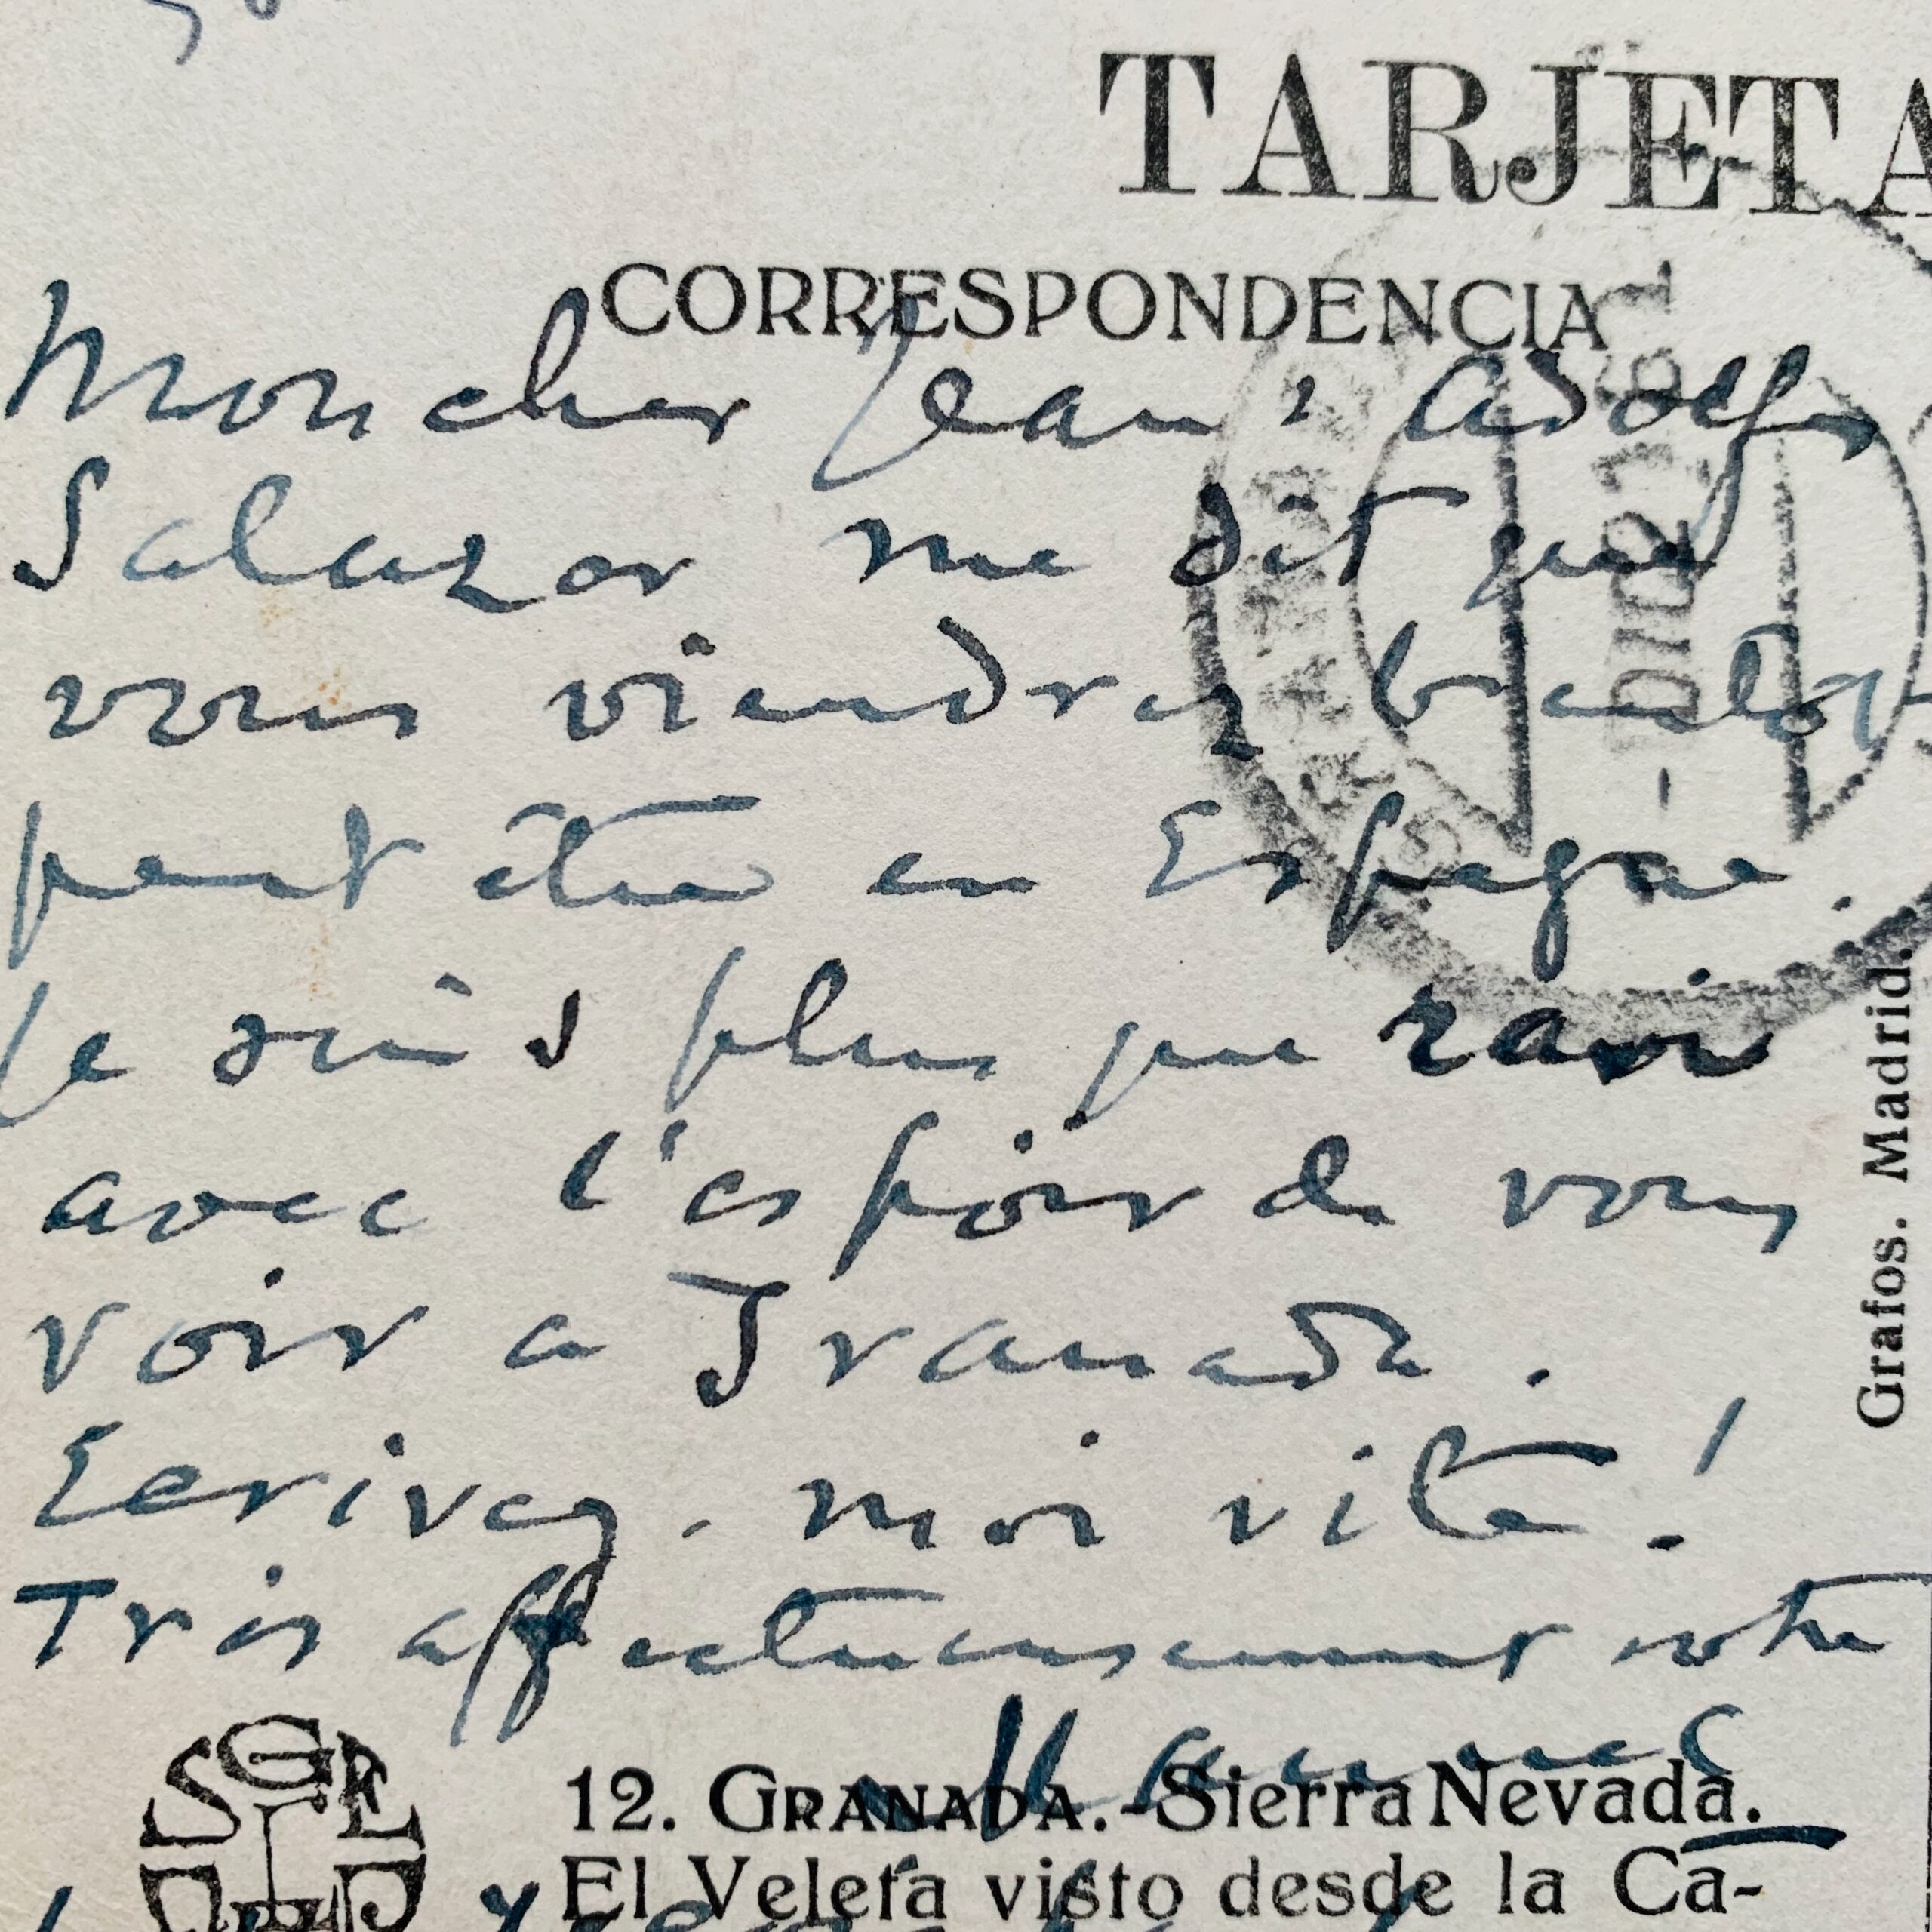 TARJETA
CORRESPONDENCIA
Mon cher Jean: Adolfo
Salazar me dit que
vous viendrez bientôt
peut être en Espagne.
Je suis plus que ravi
avec l'espoir de vous
voir a Granada.
Ecrivez-moi vite!
Très affectueusement votre
Manuel
DIC 21
Grafos. Madrid.
SGEL
12. GRANADA.-Sierra Nevada.
El Veleta visto desde la Ca-